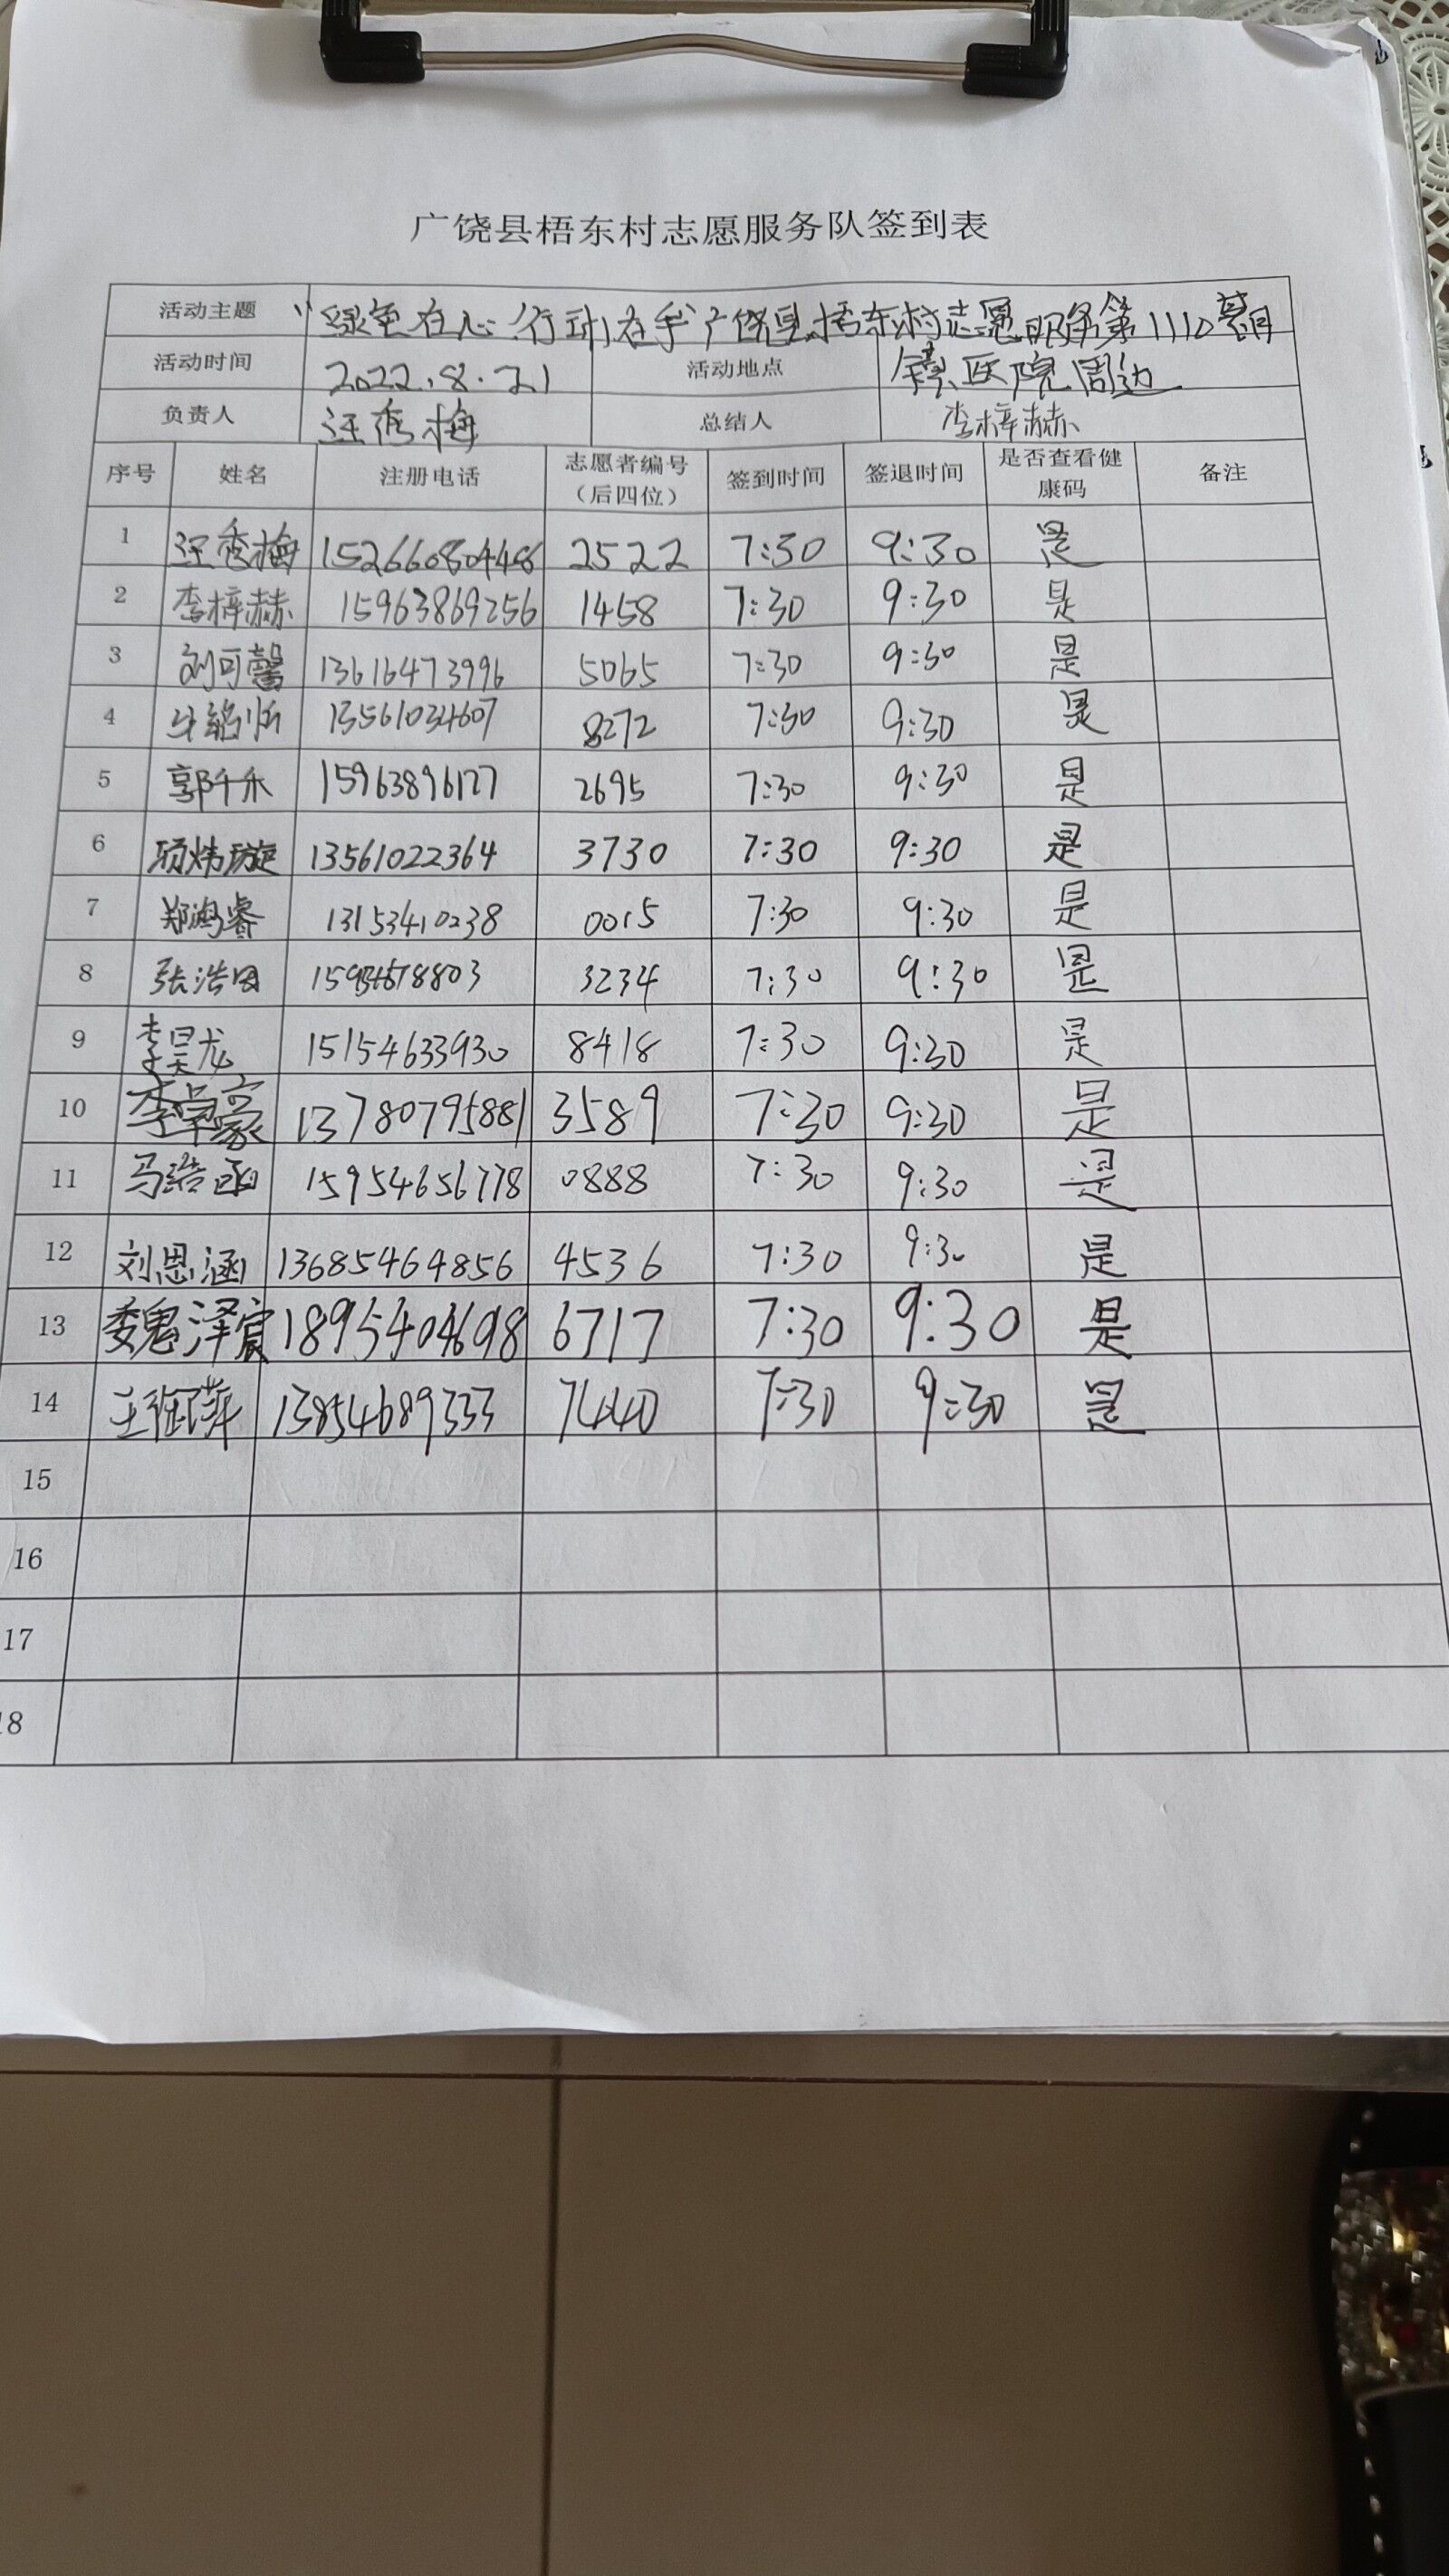 广饶县梧东村志愿服务队签到表
活动主题 “绿色在心 行动在手”广饶县梧东村志愿服务第1110期
活动时间 2022.8.21 活动地点 镇医院周边
负责人 汪秀梅 总结人 李梓赫
序号 姓名 注册电话 志愿者编号（后四位） 签到时间 签退时间 是否查看健康码 备注
1 汪秀梅 15266080448 2522 7:30 9:30 是
2 李梓赫 15963869256 1458 7:30 9:30 是
3 刘可馨 13616473996 5065 7:30 9:30 是
4 13561034607 8272 7:30 9:30 是
5 郭千禾 15963896127 2695 7:30 9:30 是
6 项炜璇 13561022364 3730 7:30 9:30 是
7 郑鸿睿 13153410238 0015 7:30 9:30 是
8 3234 7:30 9:30 是
9 李昊龙 15154633930 8418 7:30 9:30 是
10 李卓豪 13780795881 3589 7:30 9:30 是
11 马浩函 15954656778 0888 7:30 9:30 是
12 刘思涵 13685464856 4536 7:30 9:30 是
13 魏泽宸 1895404698 6717 7:30 9:30 是
14 13854689333 7440 7:30 9:30 是
15
16
17
18